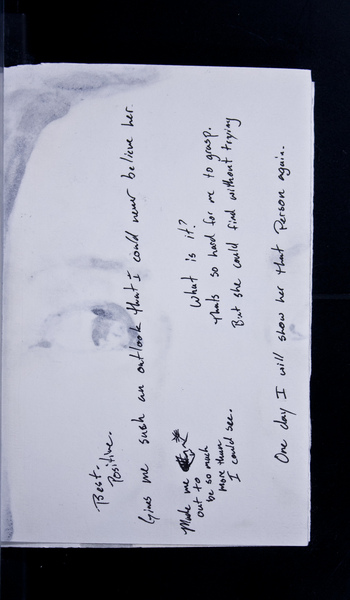 Best.
Positive.
Gives me sush an outlook that I could never believe her.
Made me
out to
be so much
more than
I could see.
What is it?
Thats so hard for me to grasp.
But she could find without trying
One day I will show her that Person again.